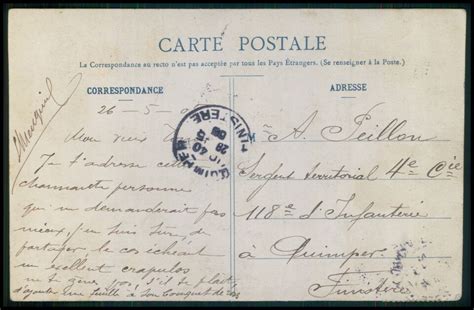 CARTE POSTALE
La Correspondance au recto n'est pas acceptée par tous les Pays Étrangers. (Se renseigner à la Poste.)
CORRESPONDANCE
26-5-
Mon vieux
Je t'adresse cette
charmante personne
qui ne demanderait pas
mieux, j'en suis sûr, de
partager le cas échéant
un excellent crapulos
ne te gêne pas s'il te plait,
d'ajouter une feuille à son bouquet de
QUIMPER
FINISTERE
ADRESSE
A. Peillon
Sergent territorial 4e Cie
118e d'Infanterie
à Quimper
Finisterie